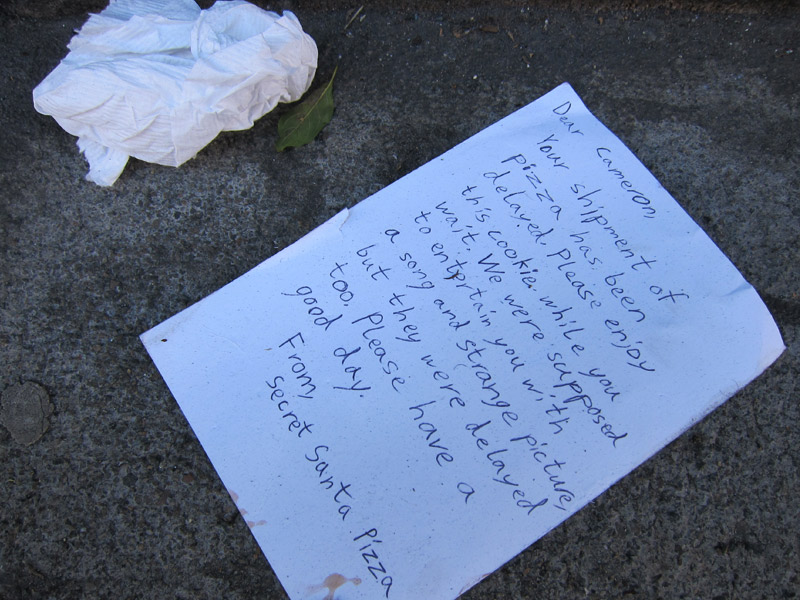 Dear Cameron,
Your shipment of
pizza has been
delayed. Please enjoy
this cookie while you
wait. We were supposed
to entertain you with
a song and strange picture,
but they were delayed
too. Please have a
good day.
From,
Secret Santa Pizza